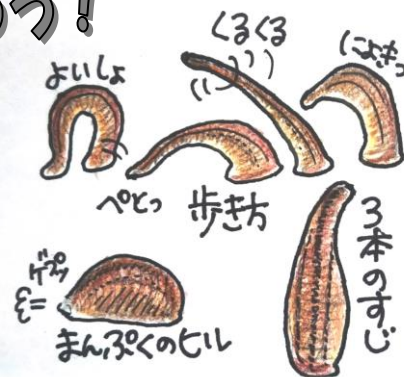 う!
よいしょ
くるくる
にょきっ
ぺとっ
歩き方
3本のすじ
ゲプッ
まんぷくのヒル